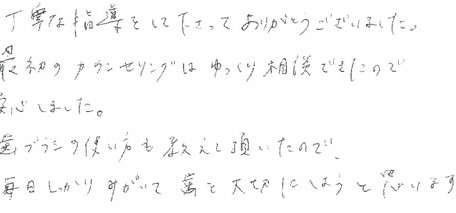 丁寧な指導をして下さってありがとうございました。
最初のカウンセリングはゆっくり相談できたので
安心しました。
歯ブラシの使い方も教えて頂いたので、
毎日しっかりみがいて歯を大切にしようと思います